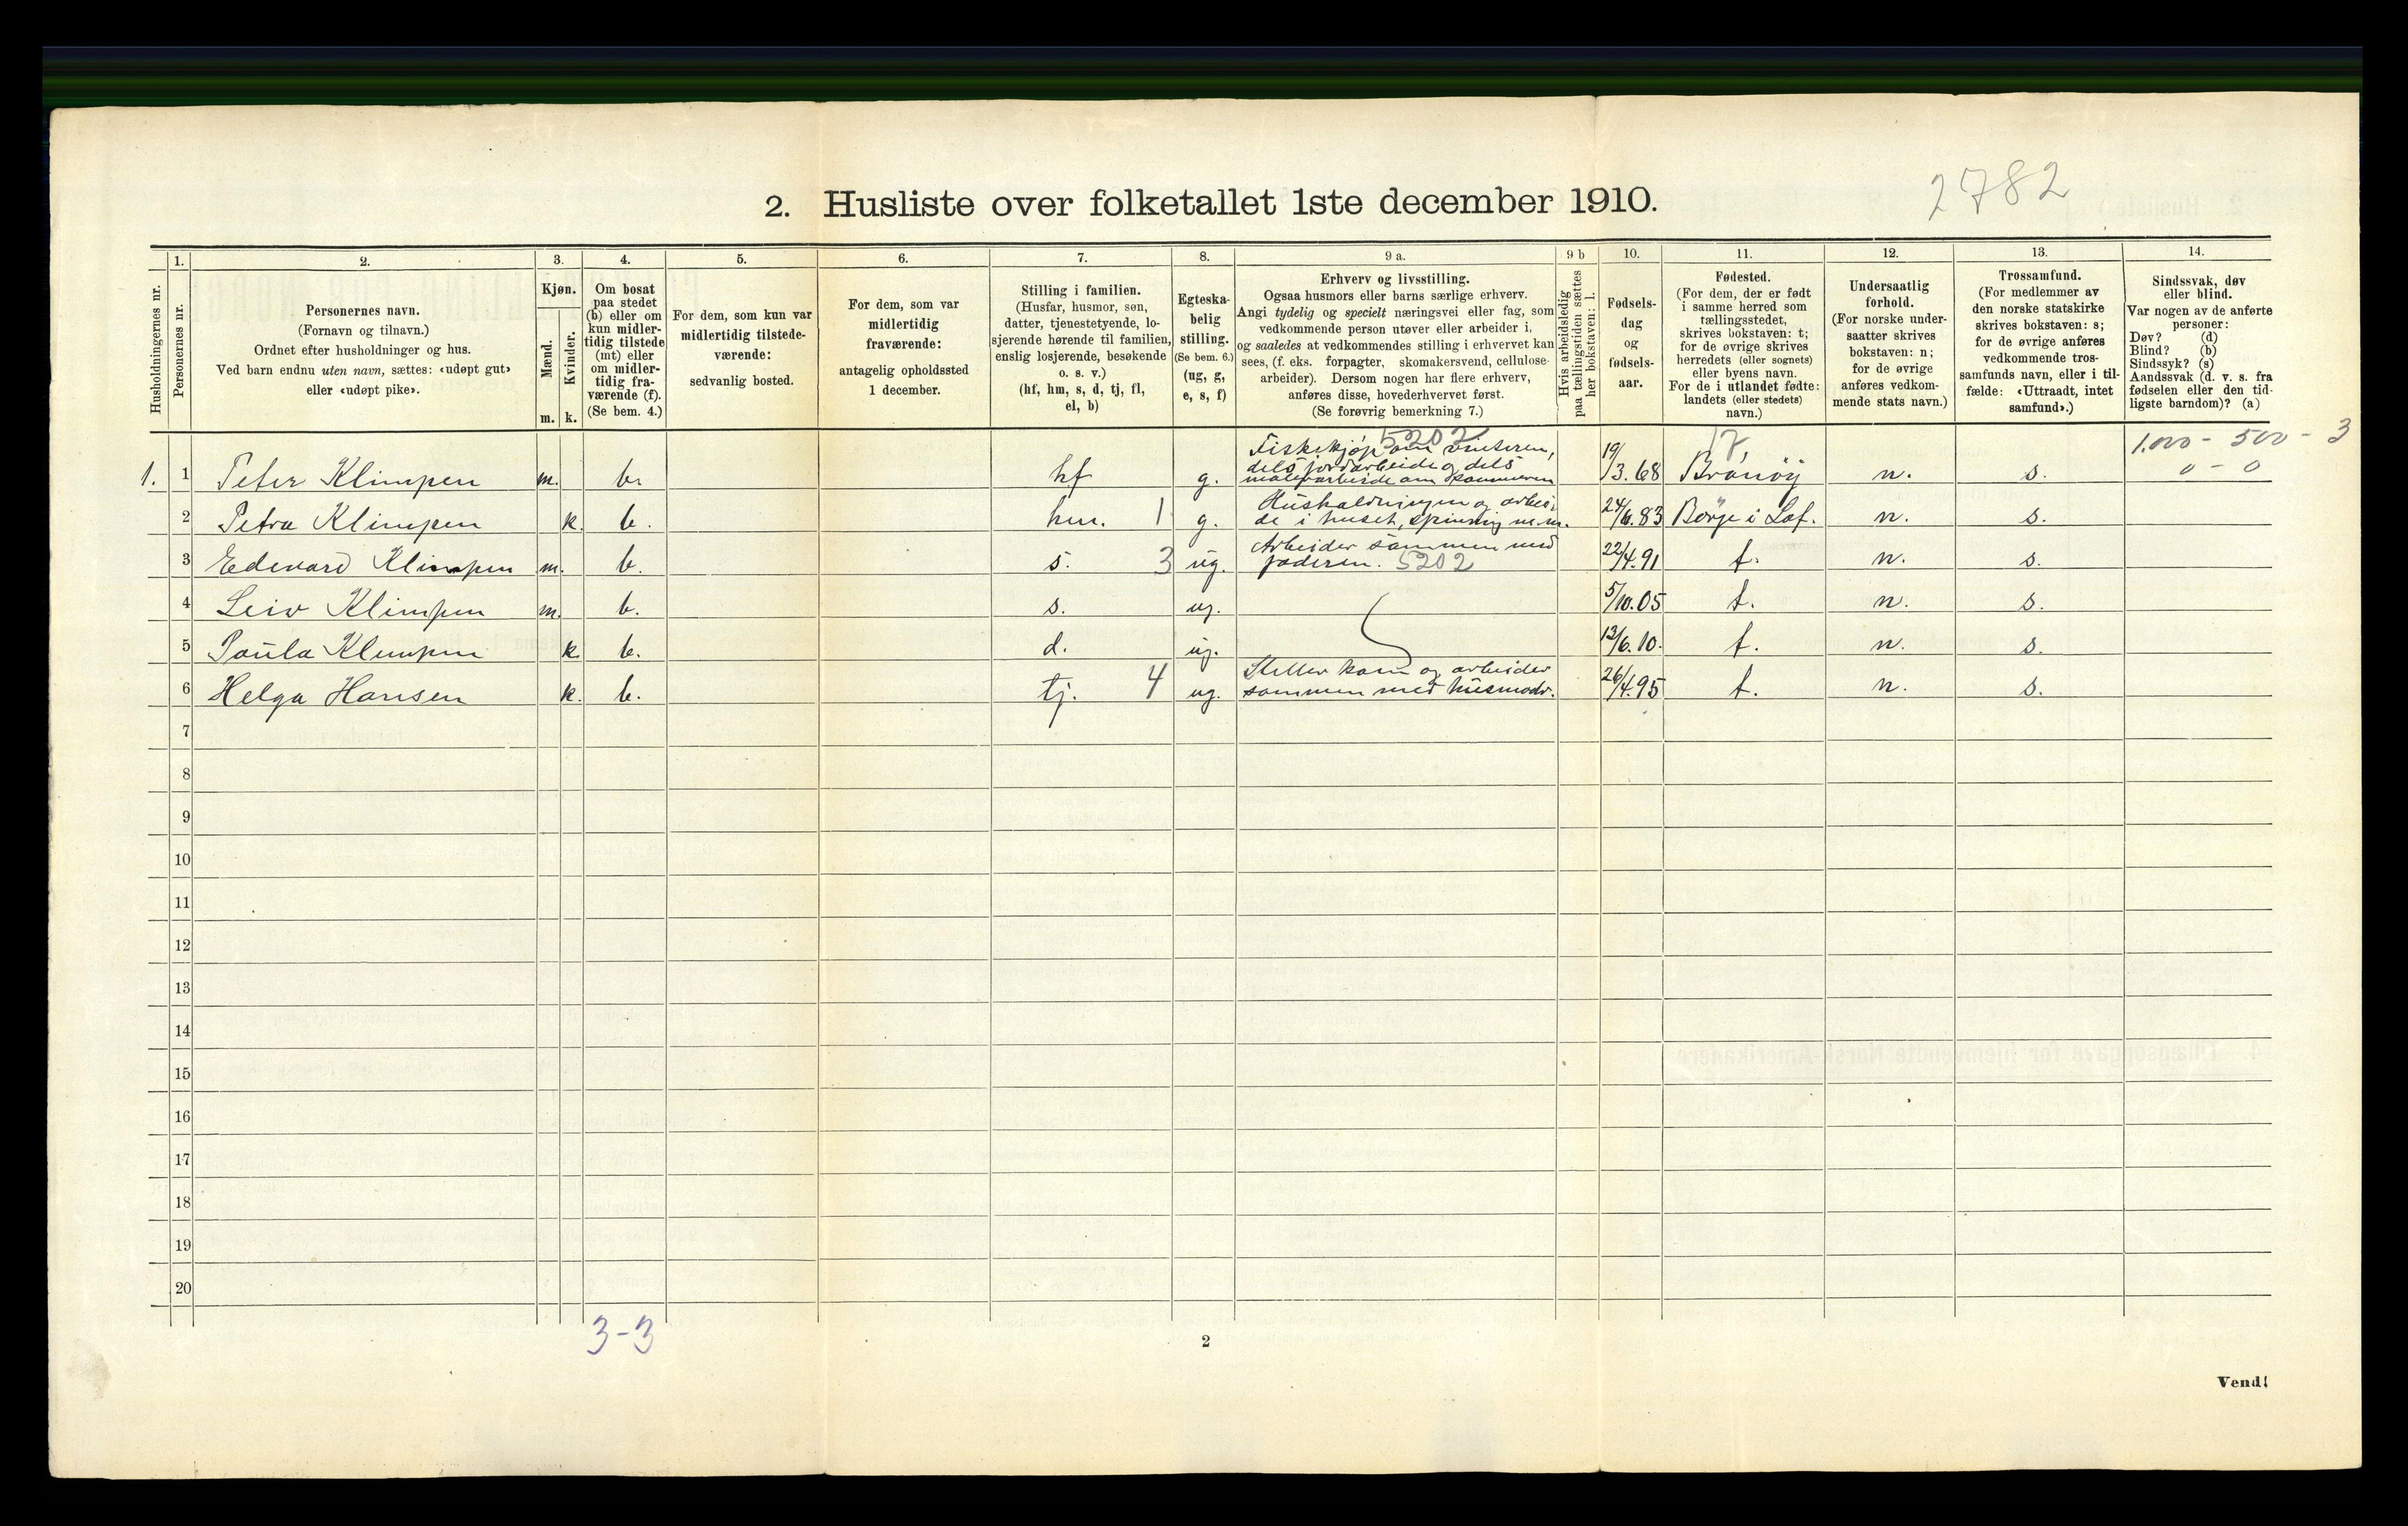 2782
2. Husliste over folketallet 1ste december 1910.
Husholdningernes nr.
1.
Personernes nr.
2.
Personernes navn.
(Fornavn og tilnavn.)
Ordnet efter husholdninger og hus.
Ved barn endnu uten navn, sættes: «udøpt gut»
eller «udøpt pike».
3.
Kjøn.
Mænd.
Kvinder.
m. k.
4.
Om bosat
paa stedet
(b) eller om
kun midler-
tidig tilstede
(mt) eller
om midler-
tidig fra-
værende (f).
(Se bem. 4.)
5.
For dem, som kun var
midlertidig tilstede-
værende:
sedvanlig bosted.
6.
For dem, som var
midlertidig
fraværende:
antagelig opholdssted
1 december.
7.
Stilling i familien.
(Husfar, husmor, søn,
datter, tjenestetyende, lo-
sjerende hørende til familien,
enslig losjerende, besøkende
o. s. v.)
(hf, hm, s, d, tj, fl,
el, b)
8.
Egteska-
belig
stilling.
(Se bem. 6.)
(ug, g,
e, s, f)
9 a.
Erhverv og livsstilling.
Ogsaa husmors eller barns særlige erhverv.
Angi tydelig og specielt næringsvei eller fag, som
vedkommende person utøver eller arbeider i,
og saaledes at vedkommendes stilling i erhvervet kan
sees, (f. eks. forpagter, skomakersvend, cellulose-
arbeider). Dersom nogen har flere erhverv,
anføres disse, hovederhvervet først.
(Se forøvrig bemerkning 7.)
9 b
Hvis arbeidsledig
paa tællingstiden sættes
her bokstaven: l.
10.
Fødsels-
dag
og
fødsels-
aar.
11.
Fødested.
(For dem, der er født
i samme herred som
tællingsstedet,
skrives bokstaven: t;
for de øvrige skrives
herredets (eller sognets)
eller byens navn.
For de i utlandet fødte:
landets (eller stedets)
navn.)
12.
Undersaatlig
forhold.
(For norske under-
saatter skrives
bokstaven: n;
for de øvrige
anføres vedkom-
mende stats navn.)
13.
Trossamfund.
(For medlemmer av
den norske statskirke
skrives bokstaven: s;
for de øvrige anføres
vedkommende tros-
samfunds navn, eller i til-
fælde: «Uttraadt, intet
samfund».)
14.
Sindssvak, døv
eller blind.
Var nogen av de anførte
personer:
Døv? (d)
Blind? (b)
Sindssyk? (s)
Aandssvak (d. v. s. fra
fødselen eller den tid-
ligste barndom)? (a)
5202 17 1.000 - 500 - 3
Fiskekjøp om vinteren,
dels jordarbeide og dels
1. 1 Peter Klimpen m. b. hf g. malerarbeide om sommeren 19/3.68 Brønøy n. s. 0 - 0
Husholdningen og arbei-
2 Petra Klimpen k. b. hm. 1 g. de i huset, spinning m.m. 24/6.83 Borge i Lof. n. s.
Arbeider sammen med
3 Edevard Klimpen m. b. s. 3 ug. faderen. 5202 22/4.91 t. n. s.
4 Leiv Klimpen m. b. s. ug. 5/10.05 t. n. s.
5 Paula Klimpen k b. d. ug. 13/6.10. t. n. s.
Steller kom og arbeider
6 Helga Hansen k. b. tj. 4 ug. sammen med husmodr. 26/4.95 t. n. s.
7
8
9
10
11
12
13
14
15
16
17
18
19
20
3-3
2
Vend!